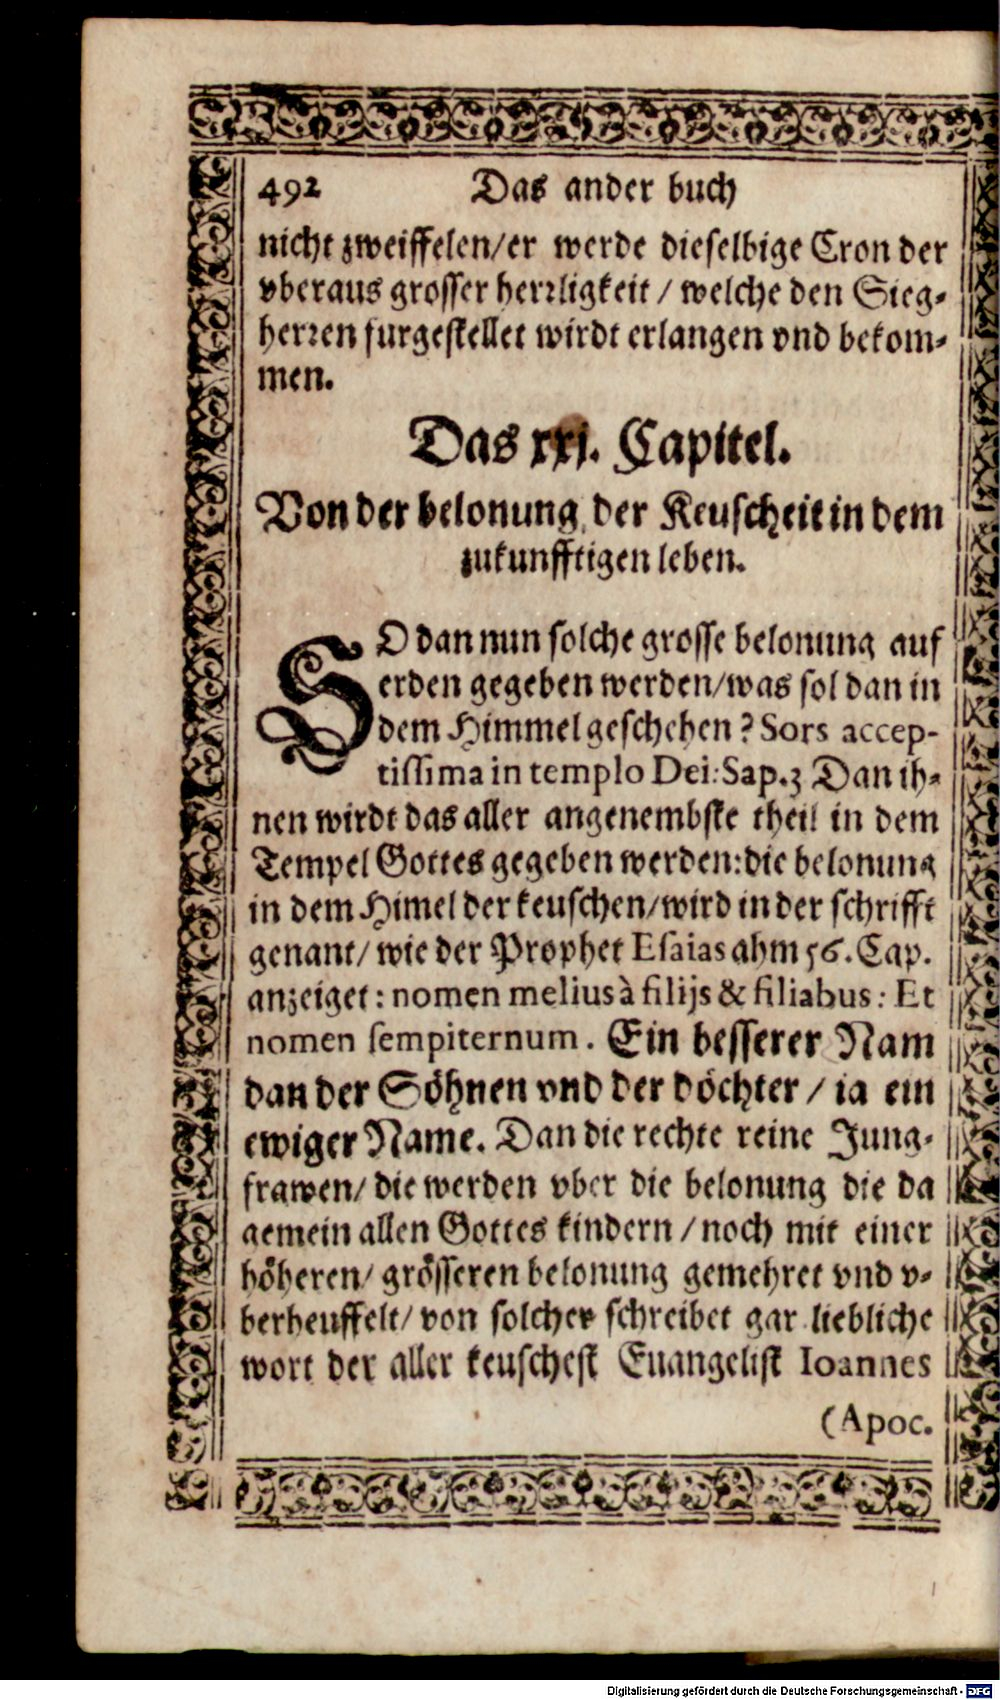 492 Das ander buch
nicht zweiffelen/er werde dieselbige Cron der
vberaus grosser herrligkeit / welche den Sieg-
herren furgestellet wirdt erlangen vnd bekom-
men.
Das xxj. Capitel.
Von der belonung der Keuscheit in dem
zukunfftigen leben.
SO dan nun solche grosse belonung auf
erden gegeben werden/was sol dan in
dem Himmel geschehen? Sors accep-
tissima in templo Dei: Sap.3 Dan ih-
nen wirdt das aller angenembste theil in dem
Tempel Gottes gegeben werden: die belonung
in dem Himel der keuschen/wird in der schrifft
genant/ wie der Prophet Esaias ahm 56. Cap.
anzeiget: nomen melius à filijs & filiabus: Et
nomen sempiternum. Ein besserer Nam
dan der Söhnen vnd der döchter / ia ein
ewiger Name. Dan die rechte reine Jung-
frawen/ die werden vber die belonung die da
gemein allen Gottes kindern / noch mit einer
höheren/ grösseren belonung gemehret vnd v-
berheuffelt/ von solcher schreibet gar liebliche
wort der aller keuschest Euangelist Ioannes
(Apoc.
Digitalisierung gefördert durch die Deutsche Forschungsgemeinschaft - DFG